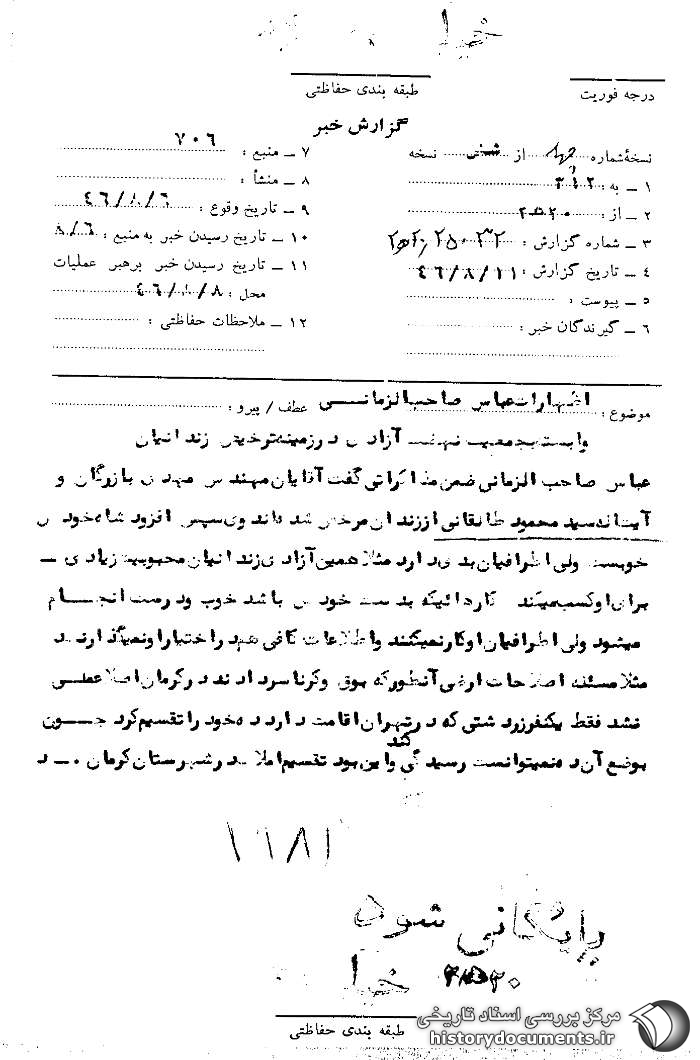 طبقه بندی حفاظتی
درجه فوریت
گزارش خبر
نسخهٔ شماره چهار از شش نسخه
۱ ـ به : ۳۱۲
۲ ـ از :
۳ ـ شماره گزارش :
۴ ـ تاریخ گزارش : ۴۶/۸/۱۱
۵ ـ پیوست :
۶ ـ گیرندگان خبر :
۷ ـ منبع : ۷۰۶
۸ ـ منشأ :
۹ ـ تاریخ وقوع : ۴۶/۸/۶
۱۰ ـ تاریخ رسیدن خبر به منبع : ۸/۶
۱۱ ـ تاریخ رسیدن خبر برهبر عملیات
محل : ۴۶/۸/۸
۱۲ ـ ملاحظات حفاظتی :
موضوع : اظهارات عباس صاحب الزمانی عطف / پیرو :
وابسته بجمعیت نهضت آزادی در زمینه ترخیص زندانیان
عباس صاحب الزمانی ضمن مذاکراتی گفت آقایان مهندس مهدی بازرگان و
آیت اله سید محمود طالقانی از زندان مرخص شده اند وی سپس افزود شاه خودش
خوبست ولی اطرافیان بدی دارد مثلا همین آزادی زندانیان محبوبیت زیادی ـ
برای او کسب میکند کارهائیکه بدست خودش باشد خوب و درست انجام
میشود ولی اطرافیان او کار نمیکنند و اطلاعات کافی هم در اختیار او نمیگذارند
مثلا مسئله اصلاحات ارضی آنطور که بوق و کرنا سر دادند در کرمان اصلا عملی
نشد فقط یکنفر زردشتی که در تهران اقامت دارد ده خود را تقسیم کرد چون
بوضع آن ده نمیتوانست رسیدگی کند و این بود تقسیم املاک در شهرستان کرمان . ـ د
۱۶۸۱
بایگانی شود
طبقه بندی حفاظتی
مرکز بررسی اسناد تاریخی
historydocuments.ir